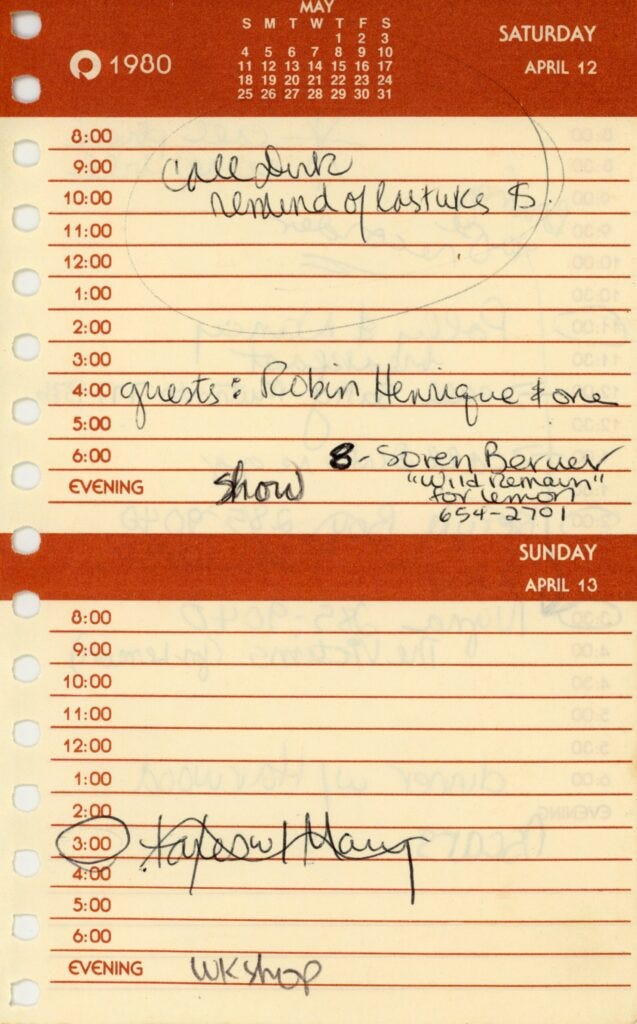 MAY
S M T W T F S
1 2 3
4 5 6 7 8 9 10
11 12 13 14 15 16 17
18 19 20 21 22 23 24
25 26 27 28 29 30 31
1980
SATURDAY
APRIL 12
8:00
9:00 Call Dirk
10:00 remind of $.
11:00
12:00
1:00
2:00
3:00
4:00 guests: Robin Henrique & one
5:00
6:00 8 - Soren
EVENING Show "Wild Remain"
for Lemon
654-2701
SUNDAY
APRIL 13
8:00
9:00
10:00
11:00
12:00
1:00
2:00
3:00
4:00
5:00
6:00
EVENING WKShop